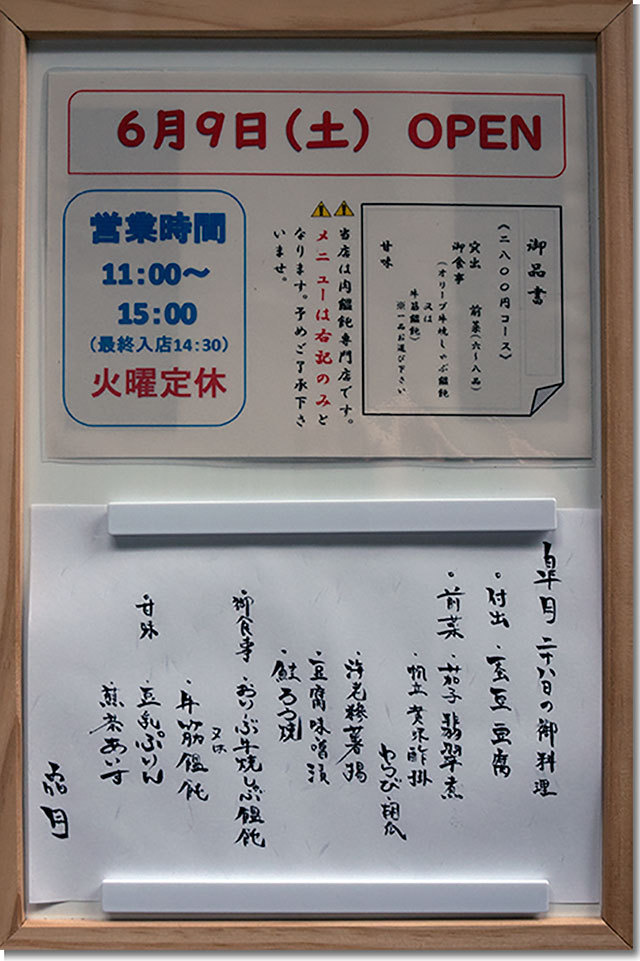 6月9日(土) OPEN
営業時間
11:00～
15:00
(最終入店14:30)
火曜定休
御品書
《二八〇〇円コース》
突出 前菜(六～八品)
御食事
(オリーブ牛焼しゃぶ饂飩
又は
牛筋饂飩)
※一品お選び下さい
甘味
当店は肉饂飩専門店です。
メニューは右記のみと
なります。予めご了承下さ
いませ。
皐月 二十八日の御料理
・付出 ・蚕豆豆腐
・前菜 ・茄子翡翠煮
・帆立黄味酢掛
わらび・胡瓜
・海老糝薯揚
・豆腐味噌漬
・鮭ろう焼
・御食事 ・おりーぶ牛焼しゃぶ饂飩
又は
・牛筋饂飩
・甘味 ・豆乳ぷりん
・煎茶あいす